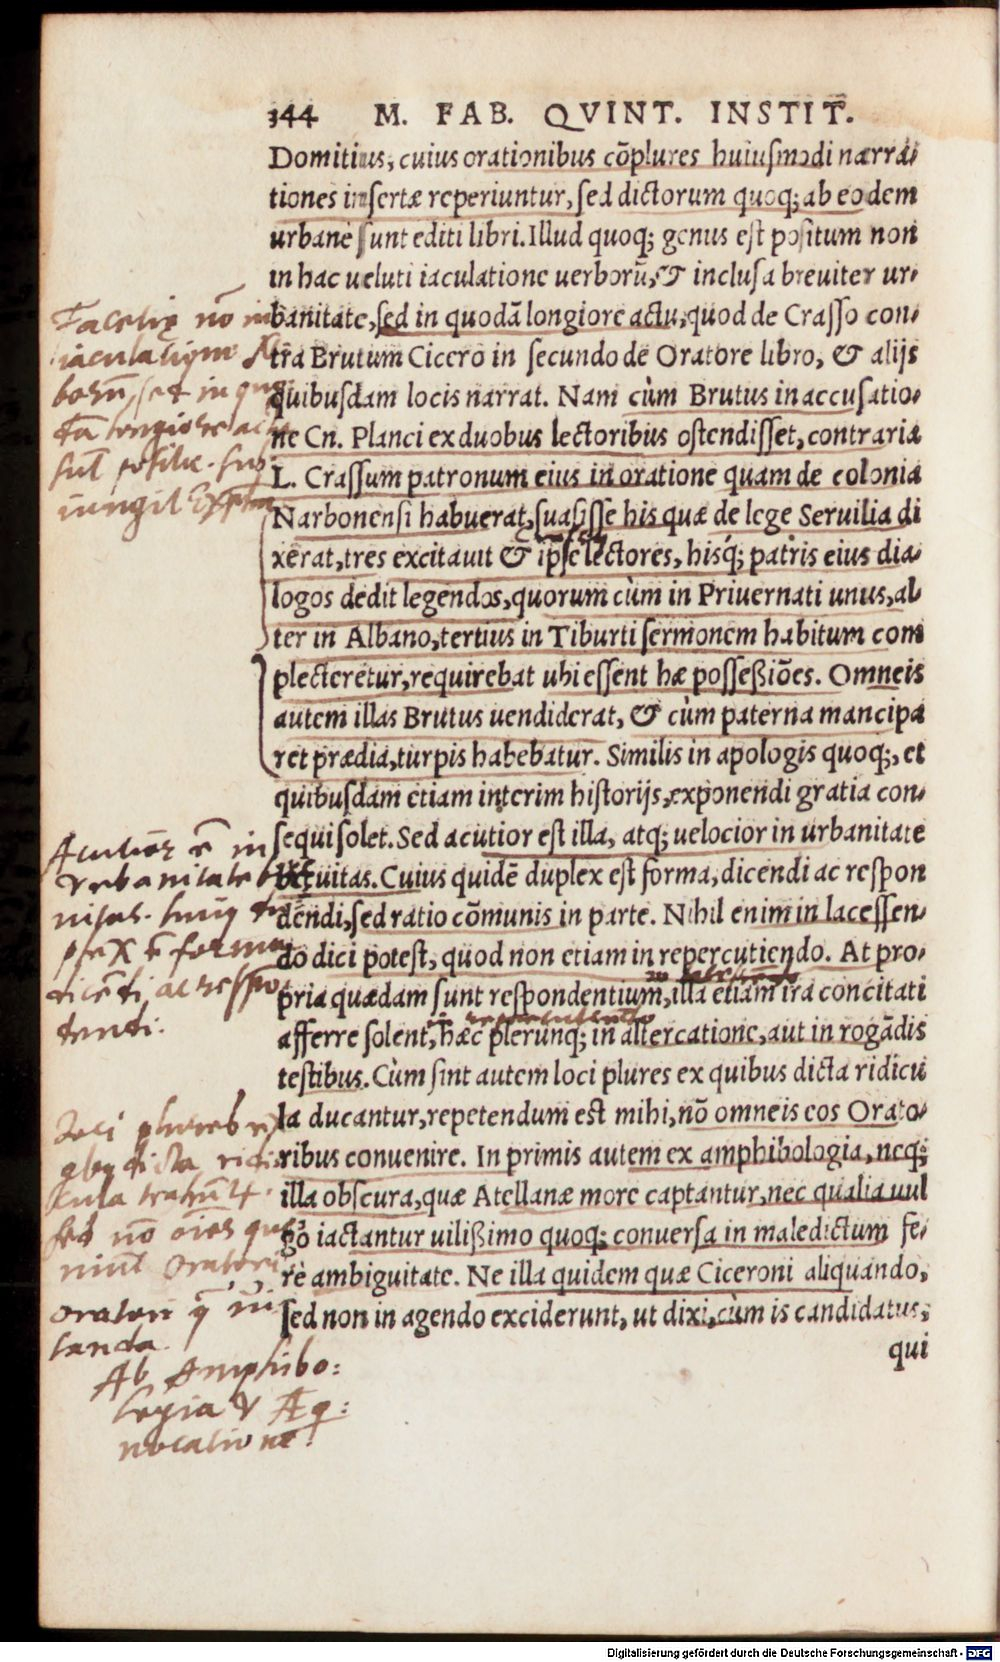 344 M. FAB. QVINT. INSTIT.
Domitius, cuius orationibus cōplures huiuſmodi narra-
tiones inſertæ reperiuntur, ſed dictorum quoq; ab eodem
urbane ſunt editi libri. Illud quoq; genus eſt poſitum non
in hac ueluti iaculatione uerborū, & incluſa breuiter ur-
banitate, ſed in quodā longiore actu, quod de Craſſo con-
tra Brutum Cicero in ſecundo de Oratore libro, & alijs
quibuſdam locis narrat. Nam cùm Brutus in accuſatio-
ne Cn. Planci ex duobus lectoribus oſtendiſſet, contraria
L. Craſſum patronum eius in oratione quam de colonia
Narbonenſi habuerat, ſuaſiſſe his quæ de lege Seruilia di
xerat, tres excitauit & ipſe lectores, hisq́; patris eius dia-
logos dedit legendos, quorum cùm in Priuernati unus, al-
ter in Albano, tertius in Tiburti ſermonem habitum com
plecteretur, requirebat ubi eſſent hæ poſſeßiões. Omneis
autem illas Brutus uendiderat, & cùm paterna mancipa
ret prædia, turpis habebatur. Similis in apologis quoq;, et
quibuſdam etiam interim hiſtorijs, exponendi gratia con-
ſequi ſolet. Sed acutior eſt illa, atq; uelocior in urbanitate
breuitas. Cuius quidē duplex eſt forma, dicendi ac reſpon
dendi, ſed ratio cōmunis in parte. Nihil enim in laceſſen-
do dici poteſt, quod non etiam in repercutiendo. At pro-
pria quædam ſunt reſpondentium, illa etiam ira concitati
afferre ſolent, hæc plerunq; in altercatione, aut in rogādis
teſtibus. Cùm ſint autem loci plures ex quibus dicta ridicu
la ducantur, repetendum eſt mihi, nō omneis eos Orato-
ribus conuenire. In primis autem ex amphibologia, neq;
illa obſcura, quæ Atellanæ more captantur, nec qualia uul
gò iactantur uilißimo quoq; conuerſa in maledictum fe-
rè ambiguitate. Ne illa quidem quæ Ciceroni aliquando,
ſed non in agendo exciderunt, ut dixi, cùm is candidatus,
qui
Facetię nō in
iaculatione
borū, ſet in quo
tā longiore ac
ſūt poſitæ. ſub
iungit Exptm
Acutior ē in
vrbanitate
uitas. huiq du
plex ē forma
dicēti, ac reſpō
tenti.
Loci plures ex
qbus dicta ridi
cula trahūtr.
ſed nō oīes que
niūt Oratori
Ab Amphibo:
logia & Æq:
uocatione!
Digitalisierung gefördert durch die Deutsche Forschungsgemeinschaft - DFG